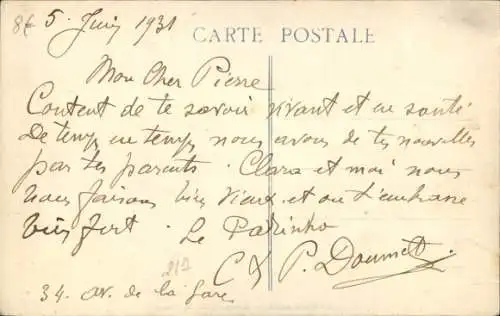 86 5 Juin 1931
CARTE POSTALE
Mon Cher Pierre
Content de te savoir vivant et en santé
De temps en temps nous avons de tes nouvelles
par tes parents. Clara et moi nous
nous faisons bien vieux et on t'embrasse
bien fort. Le Padinho
C & P. Doumet
34. av. de la gare